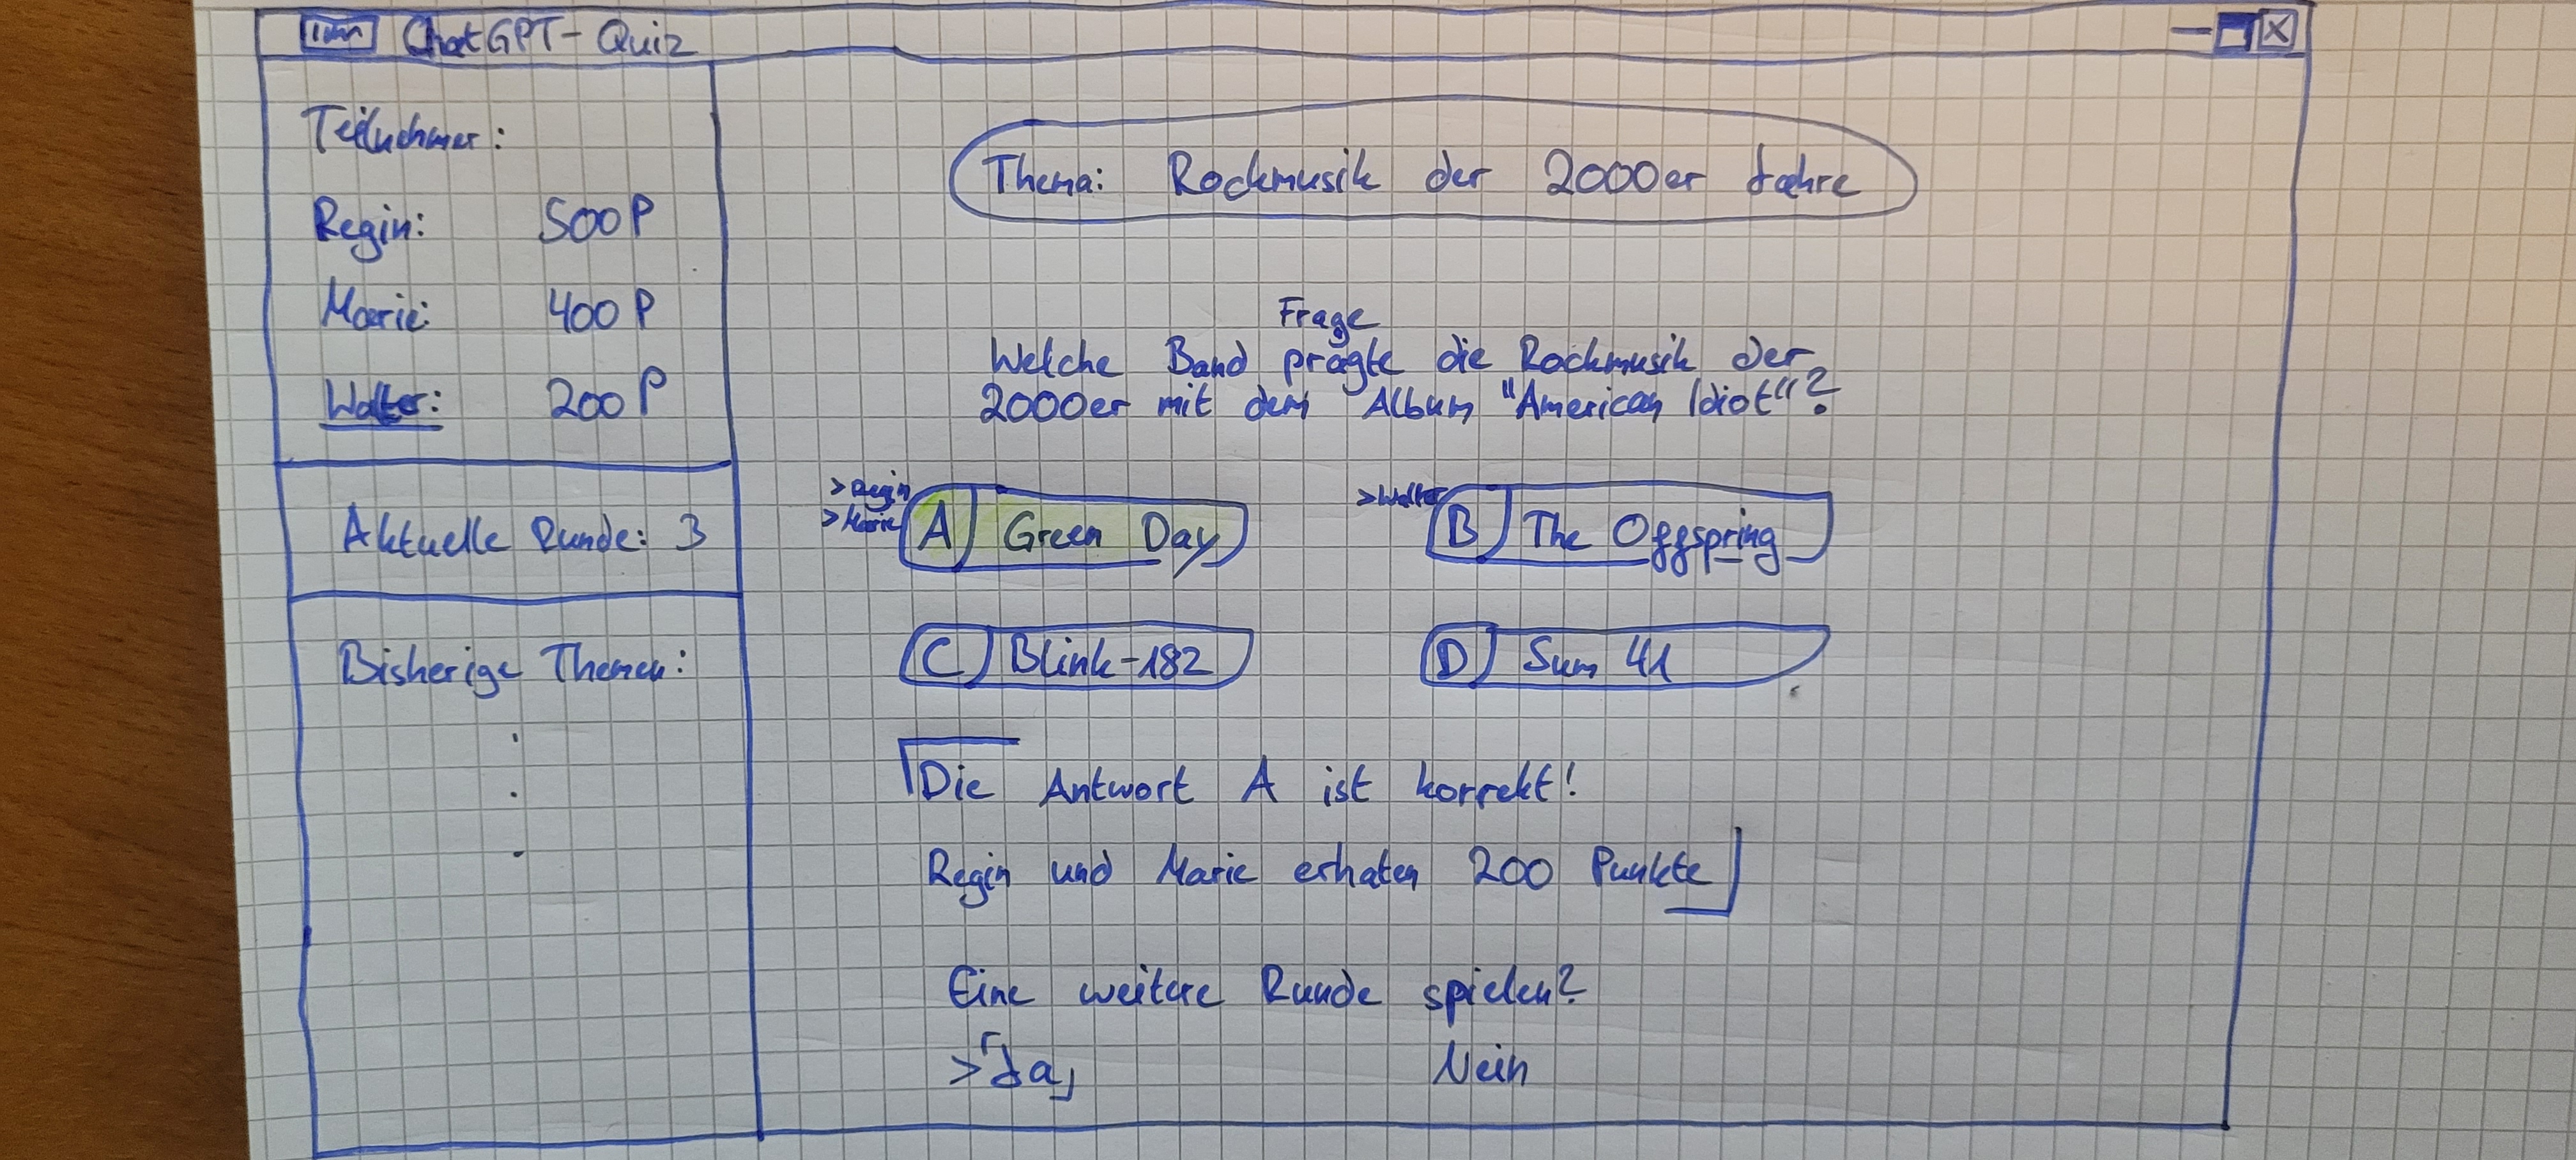 ChatGPT-Quiz
Teilnehmer:
Regin: 500P
Marie: 400P
Walter: 200P
Aktuelle Runde: 3
Bisherige Themen:
Thema: Rockmusik der 2000er Jahre
Frage
Welche Band prägte die Rockmusik der
2000er mit dem Album "American Idiot"?
>Regin
>Marie
A Green Day
>Walter
B The Offspring
C Blink-182
D Sum 41
Die Antwort A ist korrekt!
Regin und Marie erhaten 200 Punkte
Eine weitere Runde spielen?
>Ja Nein